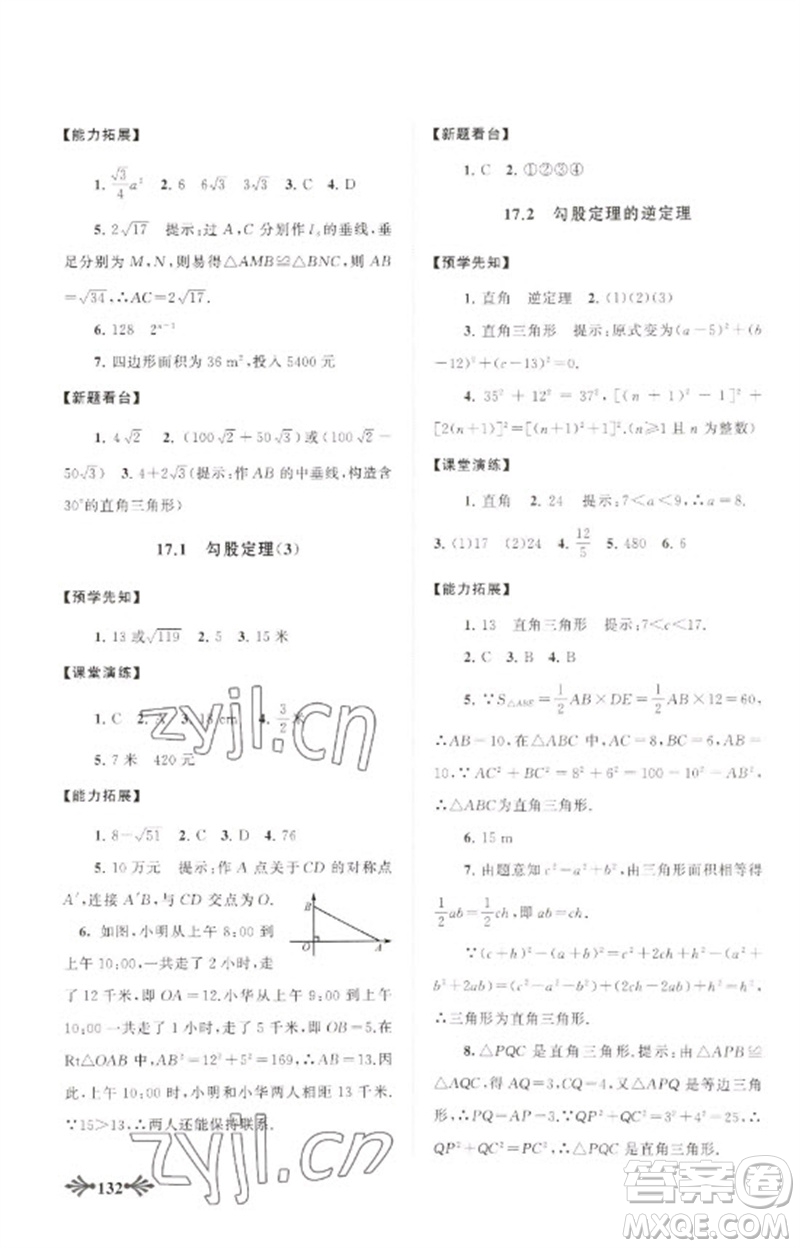 【能力拓展】
1. \frac{\sqrt{3}}{4}a² 2. 6 6√3 3√3 3. C 4. D
5. 2√17 提示:过 A,C 分别作 l₃的垂线,垂
足分别为 M,N,则易得△AMB≌△BNC,则 AB
=√34,∴AC=2√17.
6. 128 2ⁿ⁻¹
7. 四边形面积为 36 m²,投入 5400 元
【新题看台】
1. 4√2 2. (100√2+50√3)或(100√2-
50√3) 3. 4+2√3(提示:作 AB 的中垂线,构造含
30°的直角三角形)
17.1 勾股定理(3)
【预学先知】
1. 13 或√119 2. 5 3. 15 米
【课堂演练】
1. C 2. A 3. 18 cm 4. \frac{3}{2}米
5. 7 米 420 元
【能力拓展】
1. 8-√51 2. C 3. D 4. 76
5. 10 万元 提示:作 A 点关于 CD 的对称点
A′,连接 A′B,与 CD 交点为 O.
6. 如图,小明从上午 8:00 到
上午 10:00,一共走了 2 小时,走
了 12 千米,即 OA=12.小华从上午 9:00 到上午
10:00一共走了 1 小时,走了 5 千米,即 OB=5.在
Rt△OAB 中,AB²=12²+5²=169,∴AB=13.因
此,上午 10:00,小明和小华两人相距 13 千米.
∵15>13,∴两人还能保持联系.
B
O
A
132
【新题看台】
1. C 2. ①②③④
17.2 勾股定理的逆定理
【预学先知】
1. 直角 逆定理 2. (1)(2)(3)
3. 直角三角形 提示:原式变为(a-5)²+(b
-12)²+(c-13)²=0.
4. 35²+12²=37²,[(n+1)²-1]²+
[2(n+1)]²=[(n+1)²+1]².(n≥1 且 n 为整数)
【课堂演练】
1. 直角 2. 24 提示:7<a<9,∴a=8.
3. (1)17 (2)24 4. \frac{12}{5} 5. 480 6. 6
【能力拓展】
1. 13 直角三角形 提示:7<c<17.
2. C 3. B 4. B
5. ∵S△ABE=\frac{1}{2}AB×DE=\frac{1}{2}AB×12=60,
∴AB=10,在△ABC 中,AC=8,BC=6,AB=
10,∵AC²+BC²=8²+6²=100=10²=AB²,
∴△ABC为直角三角形.
6. 15 m
7. 由题意知 c²=a²+b²,由三角形面积相等得
\frac{1}{2}ab=\frac{1}{2}ch,即 ab=ch.
∵(c+h)²-(a+b)²=c²+2ch+h²-(a²+
b²+2ab)=(c²-a²-b²)+(2ch-2ab)+h²=h²,
∴三角形为直角三角形.
8. △PQC 是直角三角形.提示:△APB≌
△AQC,∴QC=PB=4,又△APQ 是等边三角
形,∴PQ=AP=3.∵QP²+QC²=3²+4²=25,∴
QP²+QC²=PC².∴△PQC 是直角三角形.
zyjl.cn
zyjl.cn
答案圈
MXQE.COM